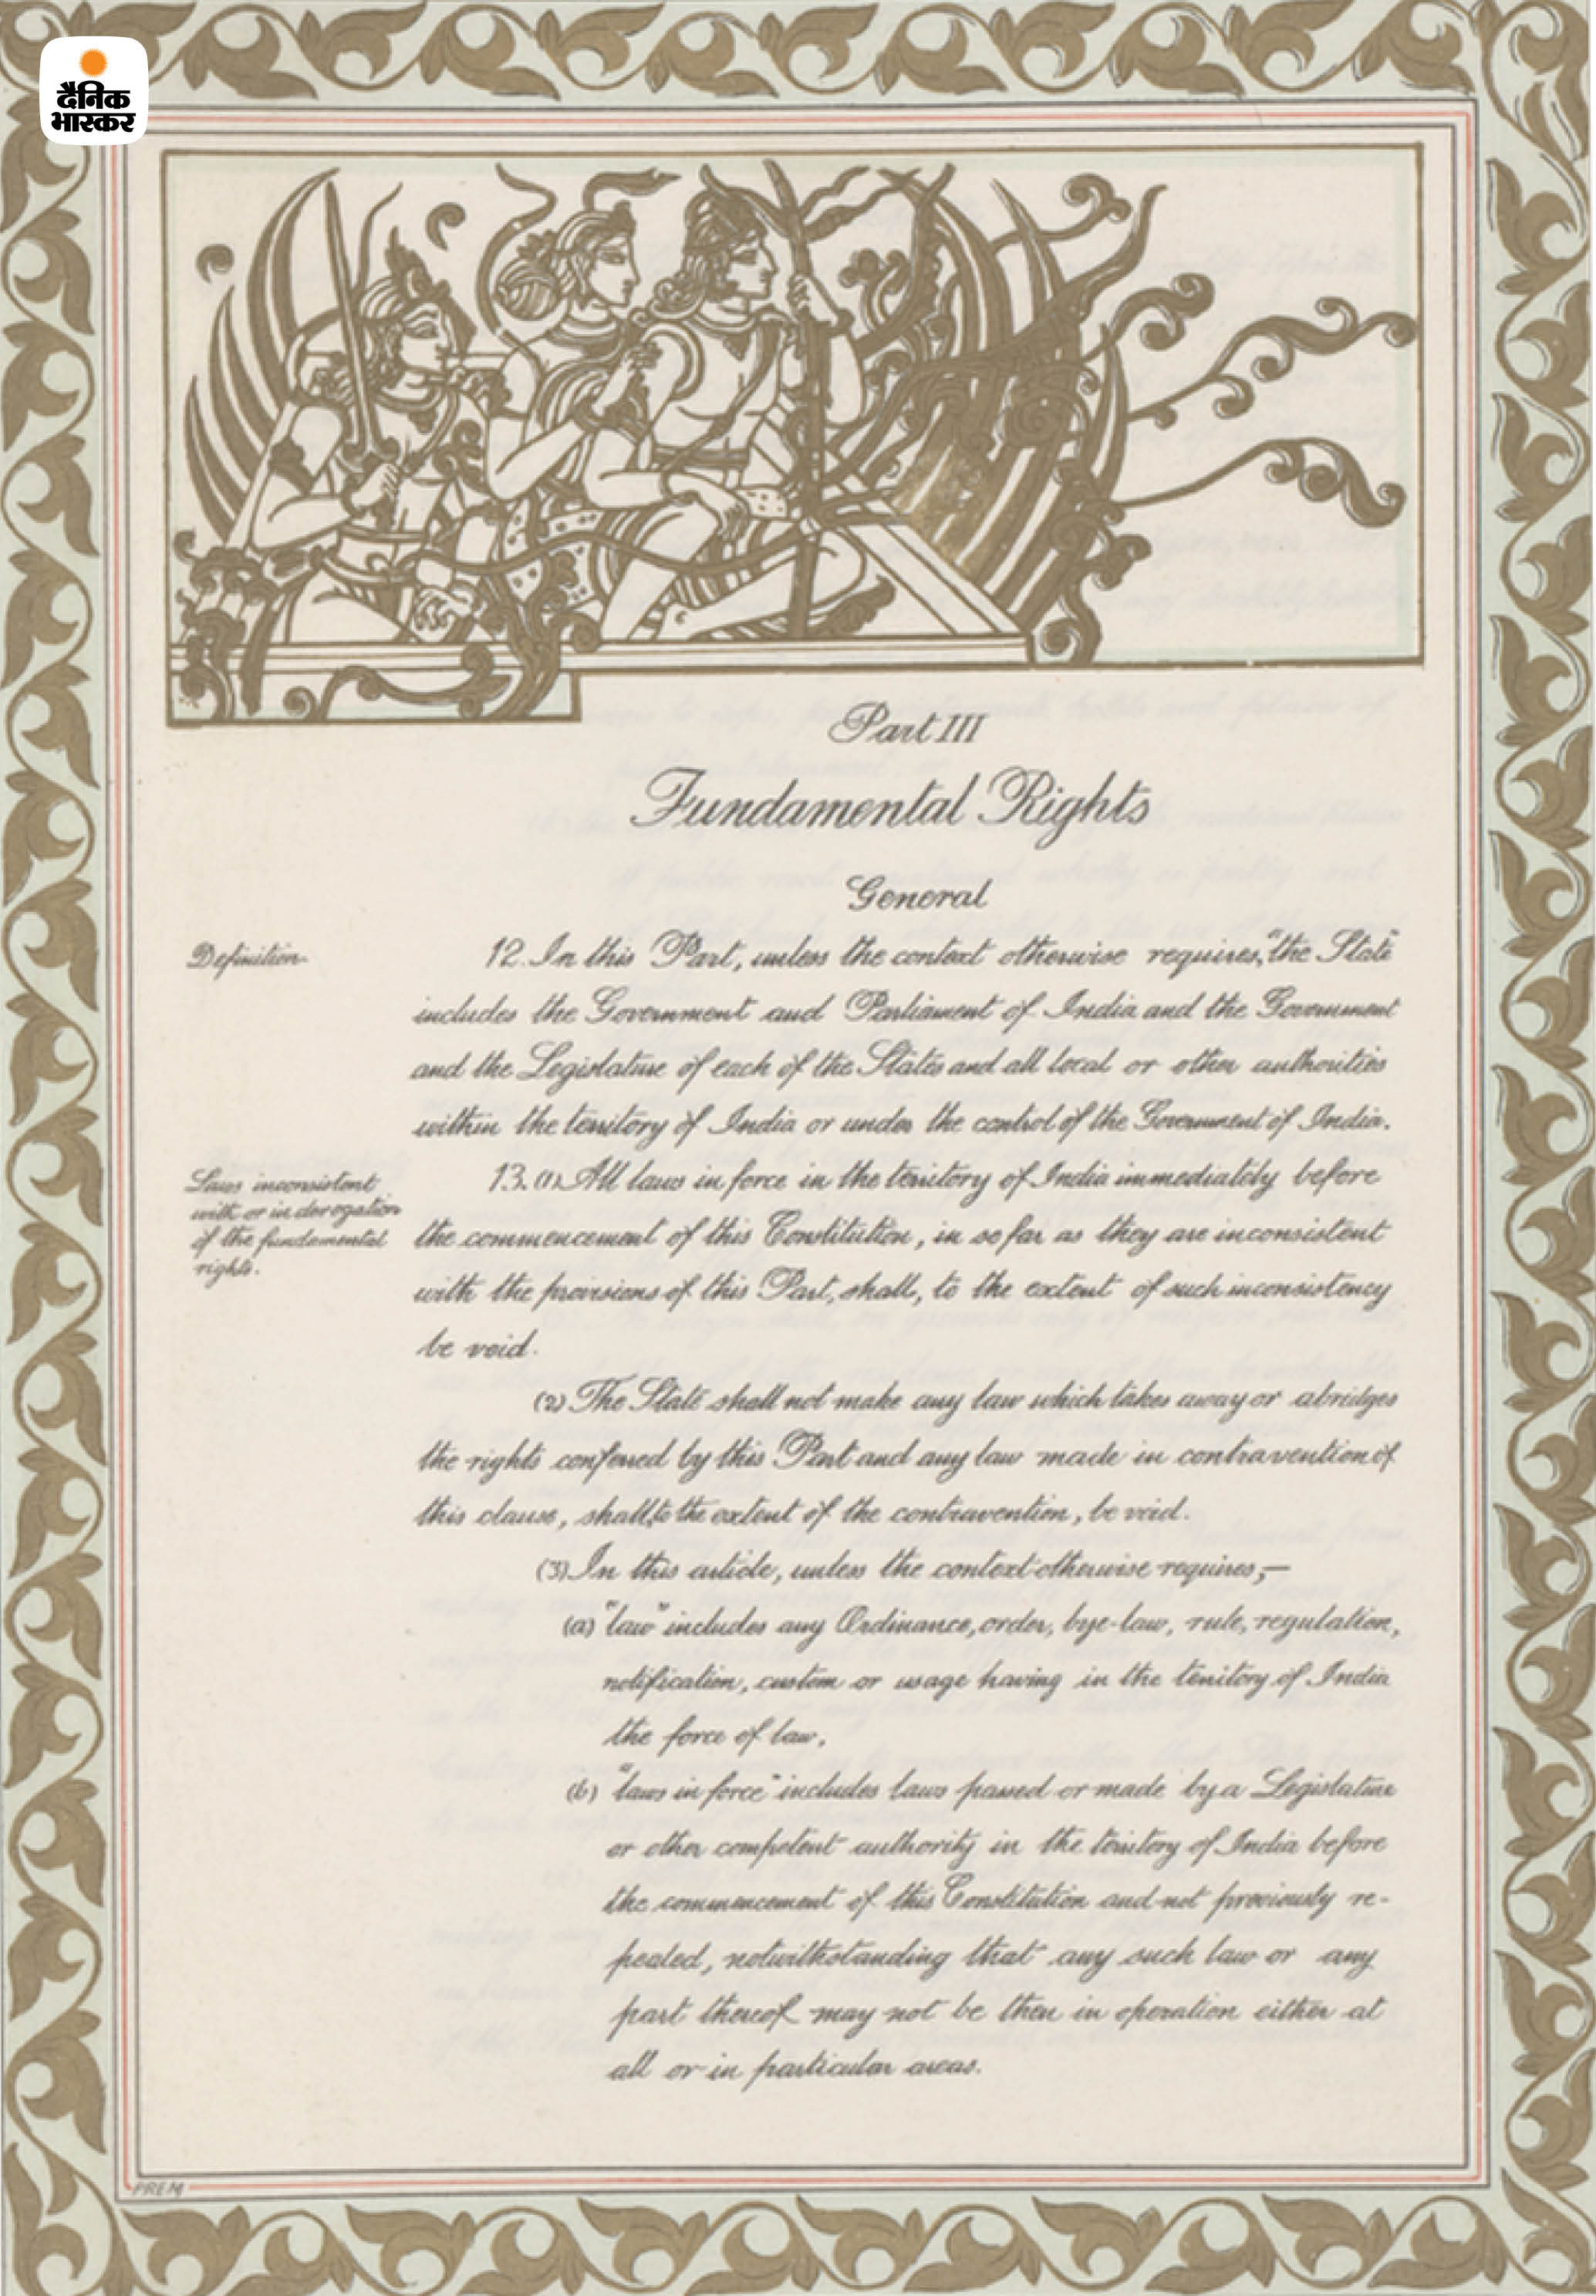 दैनिक
भास्कर
Part III
Fundamental Rights
General
Definition
12. In this Part, unless the context otherwise requires, "the State"
includes the Government and Parliament of India and the Government
and the Legislature of each of the States and all local or other authorities
within the territory of India or under the control of the Government of India.
Laws inconsistent
with or in derogation
of the fundamental
rights.
13. (1) All laws in force in the territory of India immediately before
the commencement of this Constitution, in so far as they are inconsistent
with the provisions of this Part, shall, to the extent of such inconsistency
be void.
(2) The State shall not make any law which takes away or abridges
the rights conferred by this Part and any law made in contravention of
this clause, shall, to the extent of the contravention, be void.
(3) In this article, unless the context otherwise requires,—
(a) "law" includes any Ordinance, order, bye-law, rule, regulation,
notification, custom or usage having in the territory of India
the force of law,
(b) "laws in force" includes laws passed or made by a Legislature
or other competent authority in the territory of India before
the commencement of this Constitution and not previously re-
pealed, notwithstanding that any such law or any
part thereof may not be then in operation either at
all or in particular areas.
PREM